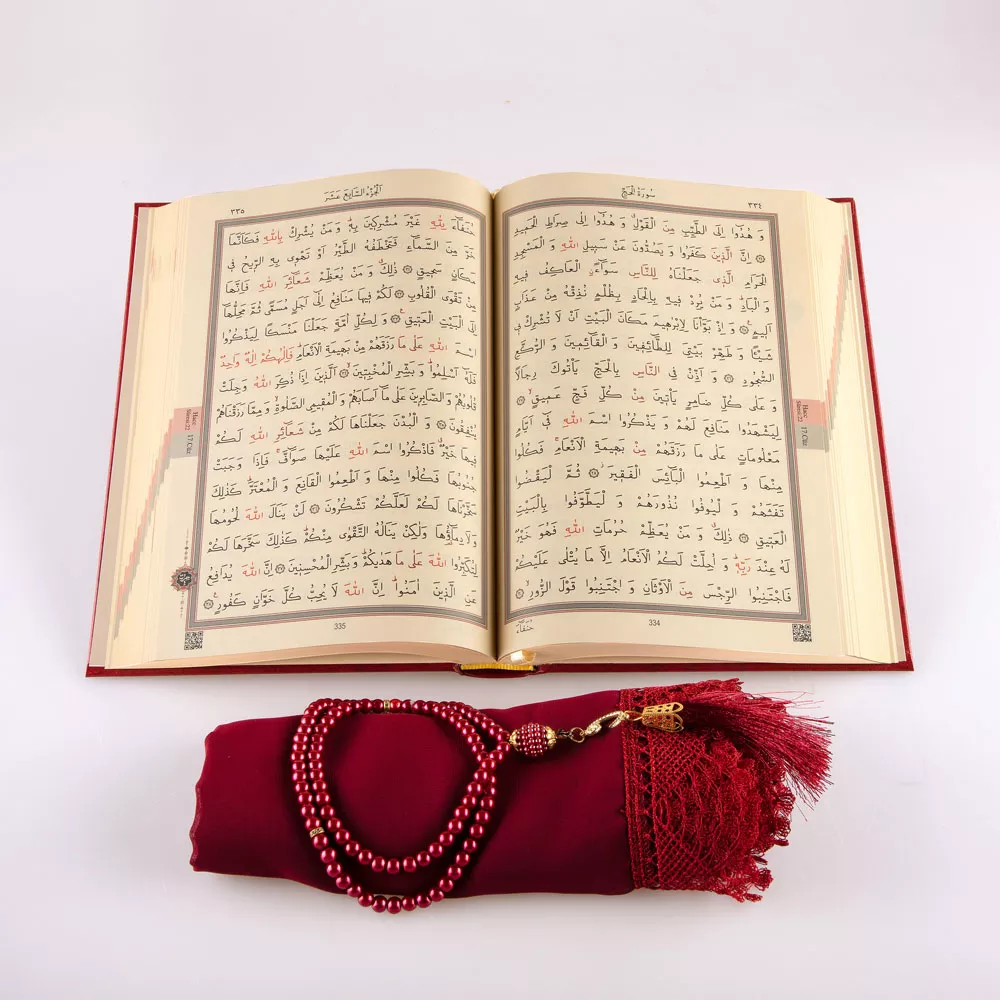 سُورَةُ الْحَجِّ
٣٣٤
وَ هُدُٓوا اِلَى الطَّيِّبِ مِنَ الْقَوْلِ وَ هُدُٓوا اِلٰى صِرَاطِ الْحَمٖيدِ
۞ اِنَّ الَّذٖينَ كَفَرُوا وَ يَصُدُّونَ عَنْ سَبٖيلِ اللّٰهِ وَ الْمَسْجِدِ
الْحَرَامِ الَّذٖى جَعَلْنَاهُ لِلنَّاسِ سَوَٓاءًۨ الْعَاكِفُ فٖيهِ
وَ الْبَادِ وَ مَنْ يُرِدْ فٖيهِ بِاِلْحَادٍ بِظُلْمٍ نُذِقْهُ مِنْ عَذَابٍ
اَلٖيمٍ ۞ وَ اِذْ بَوَّاْنَا لِاِبْرٰهٖيمَ مَكَانَ الْبَيْتِ اَنْ لَا تُشْرِكْ بٖى
شَيْئًا وَ طَهِّرْ بَيْتِىَ لِلطَّٓائِفٖينَ وَ الْقَٓائِمٖينَ وَ الرُّكَّعِ
السُّجُودِ ۞ وَ اَذِّنْ فِى النَّاسِ بِالْحَجِّ يَاْتُوكَ رِجَالًا
وَ عَلٰى كُلِّ ضَامِرٍ يَاْتٖينَ مِنْ كُلِّ فَجٍّ عَمٖيقٍ ۞
لِيَشْهَدُوا مَنَافِعَ لَهُمْ وَ يَذْكُرُوا اسْمَ اللّٰهِ فٖٓى اَيَّامٍ
مَعْلُومَاتٍ عَلٰى مَا رَزَقَهُمْ مِنْ بَهٖيمَةِ الْاَنْعَامِ فَكُلُوا
مِنْهَا وَ اَطْعِمُوا الْبَٓائِسَ الْفَقٖيرَ ۞ ثُمَّ لْيَقْضُوا
تَفَثَهُمْ وَ لْيُوفُوا نُذُورَهُمْ وَ لْيَطَّوَّفُوا بِالْبَيْتِ
الْعَتٖيقِ ۞ ذٰلِكَ وَ مَنْ يُعَظِّمْ حُرُمَاتِ اللّٰهِ فَهُوَ خَيْرٌ
لَهُ عِنْدَ رَبِّهٖ وَ اُحِلَّتْ لَكُمُ الْاَنْعَامُ اِلَّا مَا يُتْلٰى عَلَيْكُمْ
فَاجْتَنِبُوا الرِّجْسَ مِنَ الْاَوْثَانِ وَ اجْتَنِبُوا قَوْلَ الزُّورِ ۞
حُنَفَٓاءَ
334
Hacc
Sûresi 22
17.Cüz
اَلْجُزْءُ السَّابِعَ عَشَرَ
٣٣٥
حُنَفَٓاءَ لِلّٰهِ غَيْرَ مُشْرِكٖينَ بِهٖ وَ مَنْ يُشْرِكْ بِاللّٰهِ فَكَاَنَّمَا
خَرَّ مِنَ السَّمَٓاءِ فَتَخْطَفُهُ الطَّيْرُ اَوْ تَهْوٖى بِهِ الرّٖيحُ فٖى
مَكَانٍ سَحٖيقٍ ۞ ذٰلِكَ وَ مَنْ يُعَظِّمْ شَعَٓائِرَ اللّٰهِ فَاِنَّهَا
مِنْ تَقْوَى الْقُلُوبِ ۞ لَكُمْ فٖيهَا مَنَافِعُ اِلٰٓى اَجَلٍ مُسَمًّى ثُمَّ مَحِلُّهَٓا
اِلَى الْبَيْتِ الْعَتٖيقِ ۞ وَ لِكُلِّ اُمَّةٍ جَعَلْنَا مَنْسَكًا لِيَذْكُرُوا
اسْمَ اللّٰهِ عَلٰى مَا رَزَقَهُمْ مِنْ بَهٖيمَةِ الْاَنْعَامِ فَاِلٰهُكُمْ اِلٰهٌ وَاحِدٌ
فَلَهُٓ اَسْلِمُوا وَ بَشِّرِ الْمُخْبِتٖينَ ۞ اَلَّذٖينَ اِذَا ذُكِرَ اللّٰهُ وَجِلَتْ
قُلُوبُهُمْ وَ الصَّابِرٖينَ عَلٰى مَٓا اَصَابَهُمْ وَ الْمُقٖيمِى الصَّلٰوةِ وَ مِمَّا رَزَقْنَاهُمْ
يُنْفِقُونَ ۞ وَ الْبُدْنَ جَعَلْنَاهَا لَكُمْ مِنْ شَعَٓائِرِ اللّٰهِ لَكُمْ
فٖيهَا خَيْرٌ فَاذْكُرُوا اسْمَ اللّٰهِ عَلَيْهَا صَوَٓافَّ فَاِذَا وَجَبَتْ
جُنُوبُهَا فَكُلُوا مِنْهَا وَ اَطْعِمُوا الْقَانِعَ وَ الْمُعْتَرَّ كَذٰلِكَ
سَخَّرْنَاهَا لَكُمْ لَعَلَّكُمْ تَشْكُرُونَ ۞ لَنْ يَنَالَ اللّٰهَ لُحُومُهَا
وَ لَا دِمَٓاؤُهَا وَلٰكِنْ يَنَالُهُ التَّقْوٰى مِنْكُمْ كَذٰلِكَ سَخَّرَهَا لَكُمْ
لِتُكَبِّرُوا اللّٰهَ عَلٰى مَا هَدٰيكُمْ وَ بَشِّرِ الْمُحْسِنٖينَ ۞ اِنَّ اللّٰهَ يُدَافِعُ
عَنِ الَّذٖينَ اٰمَنُوا اِنَّ اللّٰهَ لَا يُحِبُّ كُلَّ خَوَّانٍ كَفُورٍ ۞
335
Hacc
Sûresi 22
17.Cüz